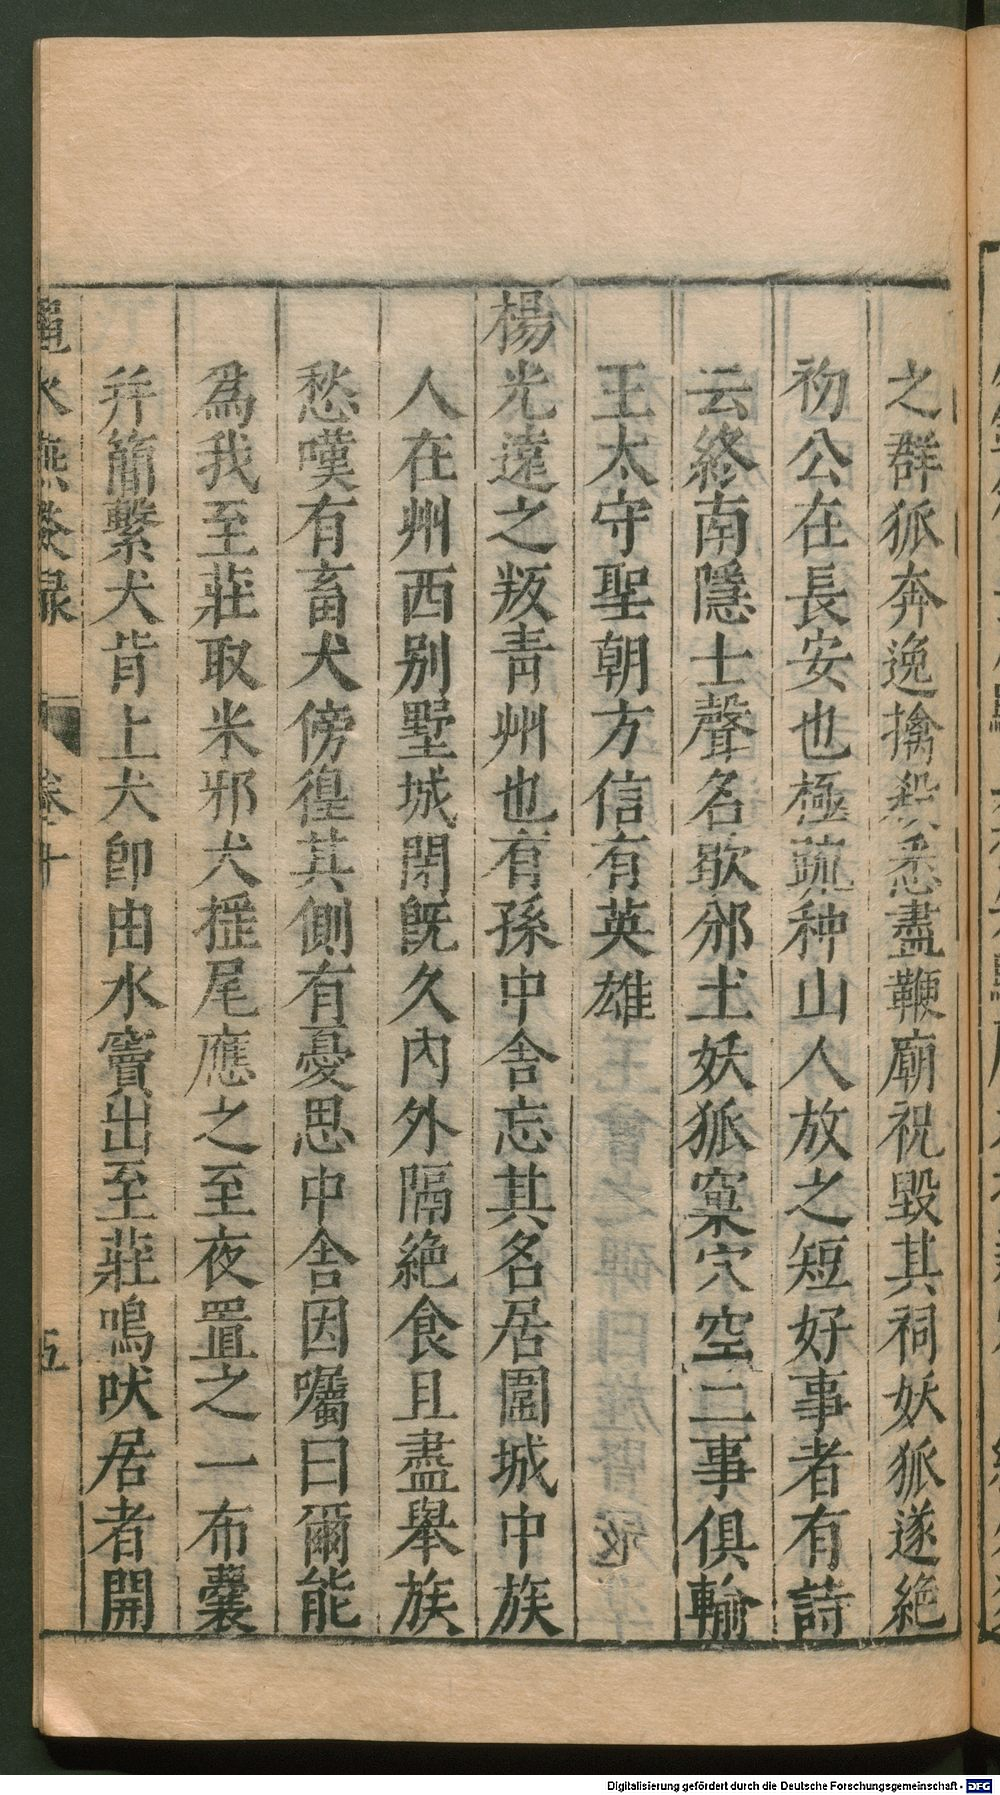 之群狐奔逸擒殺悉盡鞭廟祝毀其祠妖狐遂絕
初公在長安也極疏种山人放之短好事者有詩
云終南隱士聲名歇邠土妖狐窠穴空二事俱輸
王太守聖朝方信有英雄
楊光遠之叛青州也有孫中舍忘其名居圍城中族
人在州西別墅城閉既久內外隔絕食且盡舉族
愁嘆有畜犬傍徨其側有憂思中舍因囑曰爾能
為我至莊取米邪犬搖尾應之至夜置之一布囊
幷簡繫犬背上犬卽由水竇出至莊鳴吠居者開
澠水燕談録 卷十 五
Digitalisierung gefördert durch die Deutsche Forschungsgemeinschaft - DFG